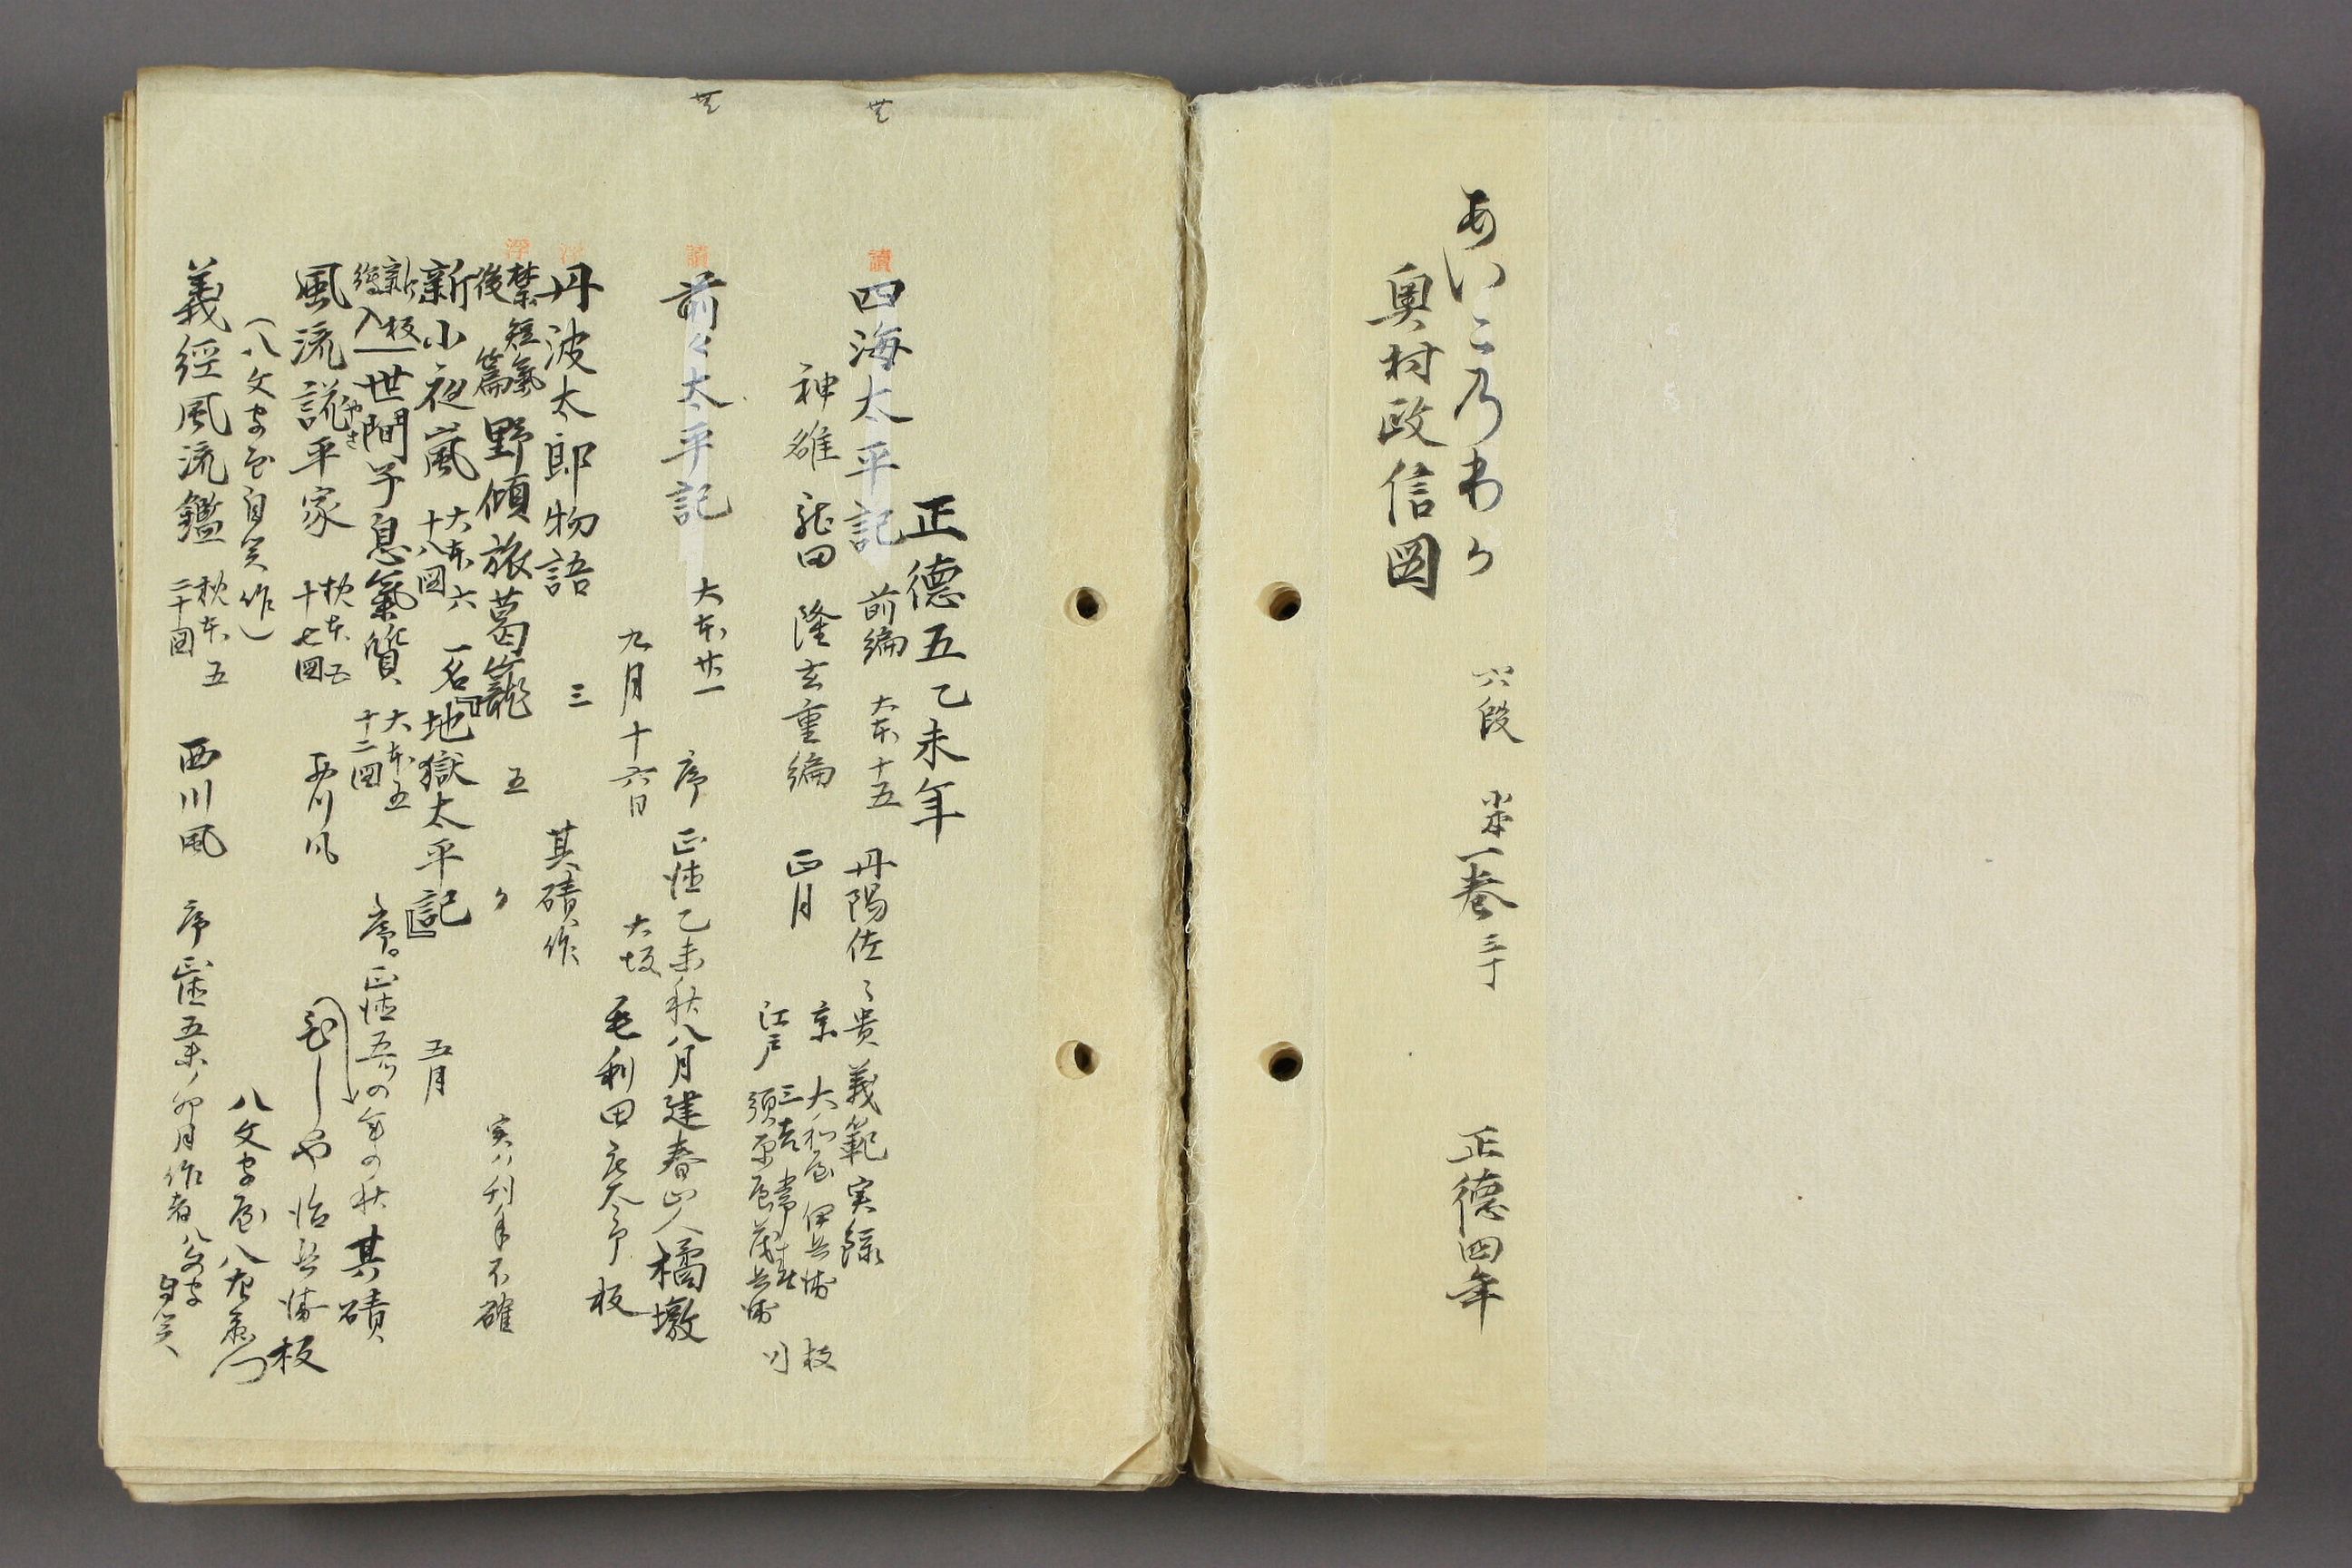 あいこのわか 六段 半紙本一巻 正徳四年
奥村政信図
正徳五乙未年
讀 四海太平記 前編 大本十五 丹陽佐々貴義範実録
神雒 龍田 隆玄重編 正月
京 大和屋 伊兵衛 板
江戸 須原屋茂兵衛
讀 前々太平記 大本廿一 序 正徳乙未秋八月建春山人橘墩
九月十六日 大坂 毛利田庄太郎 板
浮 丹波太郎物語 三 其磧作
浮 禁短氣後篇 野傾旅葛籠 五 〃 実ハ刊年不確
新小夜嵐 大本六 十八図 一名『地獄太平記』 五月
世間子息氣質 大本五 十二図 序 正徳五つの年の秋 其磧
風流誮平家 やさ 枕本五 十七図 西川風 板
(八文字屋自笑作) 八文字屋八左衛門
義經風流鑑 枕本五 二十図 西川風 序 正徳五未ノ卯月 作者八文字自笑